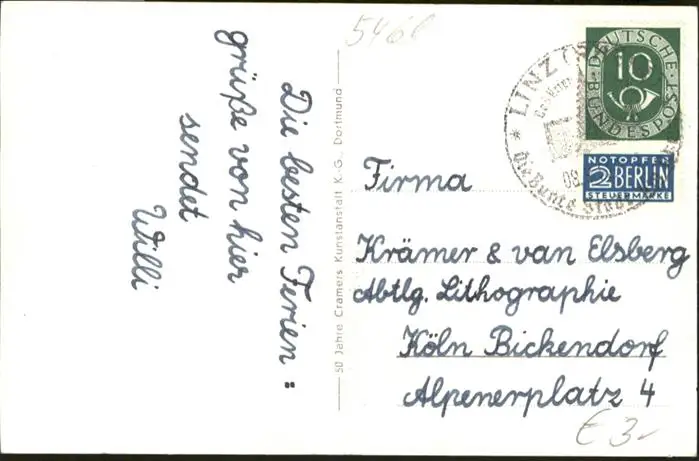 Die besten Ferien =
grüße von hier
sendet
Willi
50 Jahre Cramers Kunstanstalt K.-G., Dortmund
546
LINZ
08.
Die Bunte Stadt
DEUTSCHE
10
BUNDESPOST
NOTOPFER
2 BERLIN
STEUERMARKE
Firma
Krämer & van Elsberg
Abtlg. Lithographie
Köln Bickendorf
Alpenerplatz 4
€ 3-